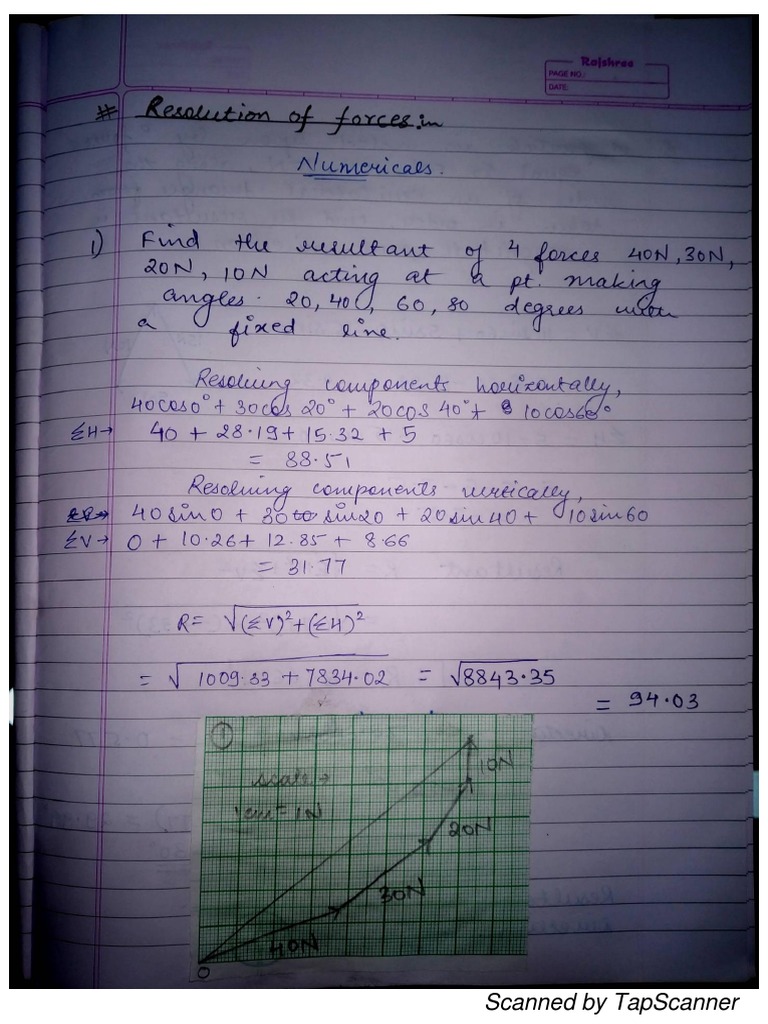 Rajshree
PAGE NO.:
DATE:
# Resolution of forces:in
Numericals.
1) Find the resultant of 4 forces 40N, 30N,
20N, 10N acting at a pt. making
angles. 20, 40, 60, 80 degrees with
a fixed line.
Resolving components horizontally,
40cos0° + 30cos 20° + 20cos 40° + 10cos60°
ΣH→ 40 + 28.19 + 15.32 + 5
= 88.51
Resolving components vertically,
40 sin0 + 30 sin20 + 20 sin 40 + 10 sin 60
ΣV→ 0 + 10.26 + 12.85 + 8.66
= 31.77
R= √(ΣV)²+(ΣH)²
= √1009.33 + 7834.02 = √8843.35
= 94.03
1
scale→
1cm = 1N
10N
20N
30N
40N
O
Scanned by TapScanner